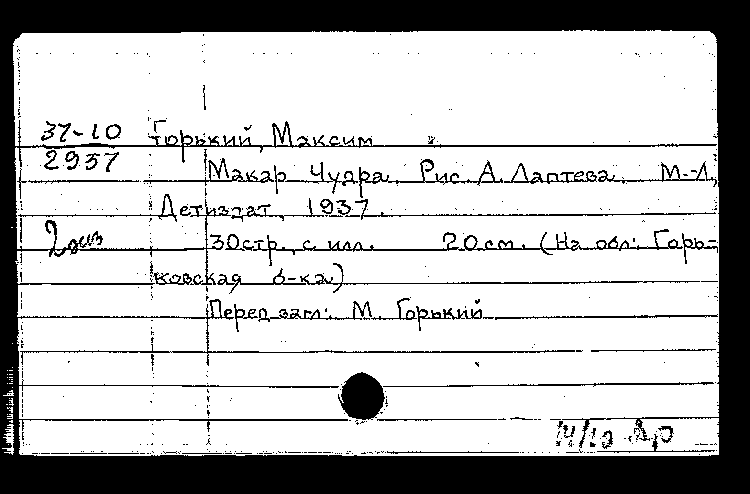 37-10
2937
Горький, Максим
Макар Чудра. Рис. А. Лаптева. М.-Л.,
Детиздат, 1937.
2 экз
30 стр., с илл. 20 см. (На обл: Горь-
ковская б-ка)
Перед загл: М. Горький
14/10